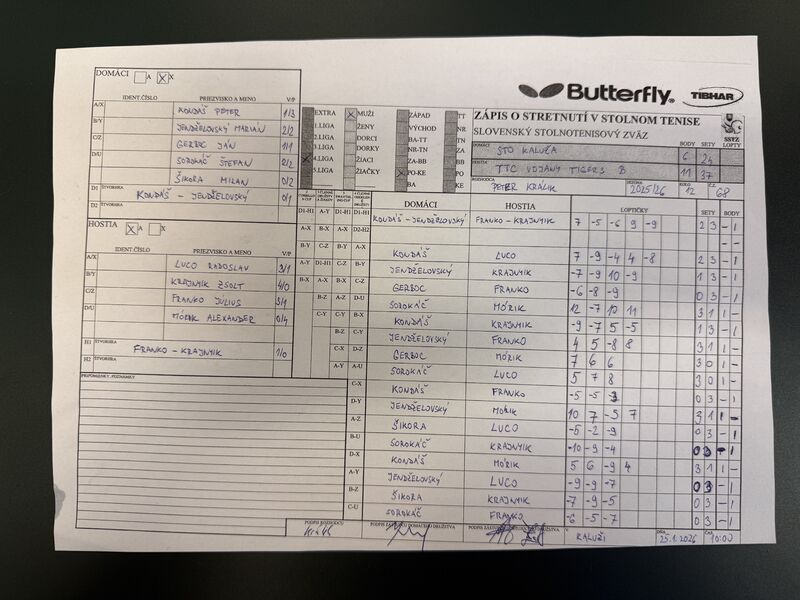 DOMÁCI A X X
IDENT.ČÍSLO PRIEZVISKO A MENO V/P
A/X KONDÁŠ PETER 1/3
B/Y JENDŽELOVSKÝ MARIÁN 2/2
C/Z GERBOC JÁN 1/1
D/U SOROKÁČ ŠTEFAN 2/2
ŠIKORA MILAN 0/2
D1 ŠTVORHRA KONDÁŠ - JENDŽELOVSKÝ 0/1
D2
HOSTIA X A X
IDENT.ČÍSLO PRIEZVISKO A MENO V/P
A/X LUCO RADOSLAV 3/1
B/Y KRAJNYIK ZSOLT 4/0
C/Z FRANKO JULIUS 3/1
D/U MÓRIK ALEXANDER 0/4
H1 ŠTVORHRA FRANKO - KRAJNYIK 1/0
H2 ŠTVORHRA
PRIPOMIENKY, POZNÁMKY
Butterfly TIBHAR
EXTRA X MUŽI ZÁPAD TT
1.LIGA ŽENY VÝCHOD NR
2.LIGA DORCI BA-TT TN
3.LIGA DORKY NR-TN ZA
X 4.LIGA ŽIACI ZA-BB BB
5.LIGA ŽIAČKY X PO-KE PO
BA KE
ZÁPIS O STRETNUTÍ V STOLNOM TENISE
SLOVENSKÝ STOLNOTENISOVÝ ZVÄZ
SSTZ
DOMÁCI BODY SETY LOPTY
STO KALUŽA 6 24
HOSTIA
TTC VOJANY TIGERS B 11 37
ROZHODCA PETER KRÁLIK SEZÓNA 2025/26 KOLO 12 Č.Z. 68
DOMÁCI HOSTIA LOPTIČKY SETY BODY
D1-H1 A-Y D1-H1 D1-H1 KONDÁŠ - JENDŽELOVSKÝ FRANKO - KRAJNYIK 7 -5 -6 9 -9 2 3 - 1
A-X B-X A-X D2-H2
B-Y C-Z B-Y A-X KONDÁŠ LUCO 7 -9 -4 4 -8 2 3 - 1
A-Y D1-H1 C-Z B-Y JENDŽELOVSKÝ KRAJNYIK -7 -9 10 -9 1 3 - 1
B-X A-X B-X C-Z GERBOC FRANKO -6 -8 -9 0 3 - 1
B-Z A-Z D-U SOROKÁČ MÓRIK 12 -7 10 11 3 1 1 -
C-Y C-Y B-X KONDÁŠ KRAJNYIK -9 -7 5 -5 1 3 - 1
B-Z C-Y JENDŽELOVSKÝ FRANKO 4 5 -8 8 3 1 1 -
C-X D-Z GERBOC MÓRIK 7 6 6 3 0 1 -
A-Y A-U SOROKÁČ LUCO 5 7 8 3 0 1 -
C-X KONDÁŠ FRANKO -5 -5 0 3 - 1
D-Y JENDŽELOVSKÝ MÓRIK 10 7 -5 7 3 1 1 -
A-Z ŠIKORA LUCO -5 -2 -9 0 3 - 1
B-U SOROKÁČ KRAJNYIK -10 -9 -4 0 3 - 1
D-X KONDÁŠ MÓRIK 5 6 -9 4 3 1 1 -
A-Y JENDŽELOVSKÝ LUCO -9 -9 -7 0 3 - 1
B-Z ŠIKORA KRAJNYIK -7 -9 -5 0 3 - 1
C-U SOROKÁČ FRANKO -6 -5 -7 0 3 - 1
PODPIS ROZHODCU PODPIS ZÁSTUPCU DOMÁCEHO DRUŽSTVA V KALUŽI DŇA 25.1.2026 ČAS 10:00